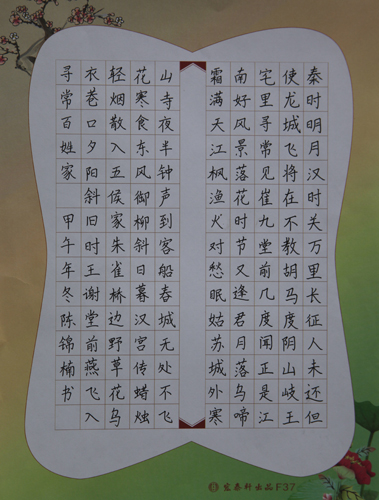 秦时明月汉时关万里长征人未还但
使龙城飞将在不教胡马度阴山岐王
宅里寻常见崔九堂前几度闻正是江
南好风景落花时节又逢君月落乌啼
霜满天江枫渔火对愁眠姑苏城外寒
山寺夜半钟声到客船春城无处不飞
花寒食东风御柳斜日暮汉宫传蜡烛
轻烟散入五侯家朱雀桥边野草花乌
衣巷口夕阳斜旧时王谢堂前燕飞入
寻常百姓家 甲午年冬陈锦楠书
轩出品F37